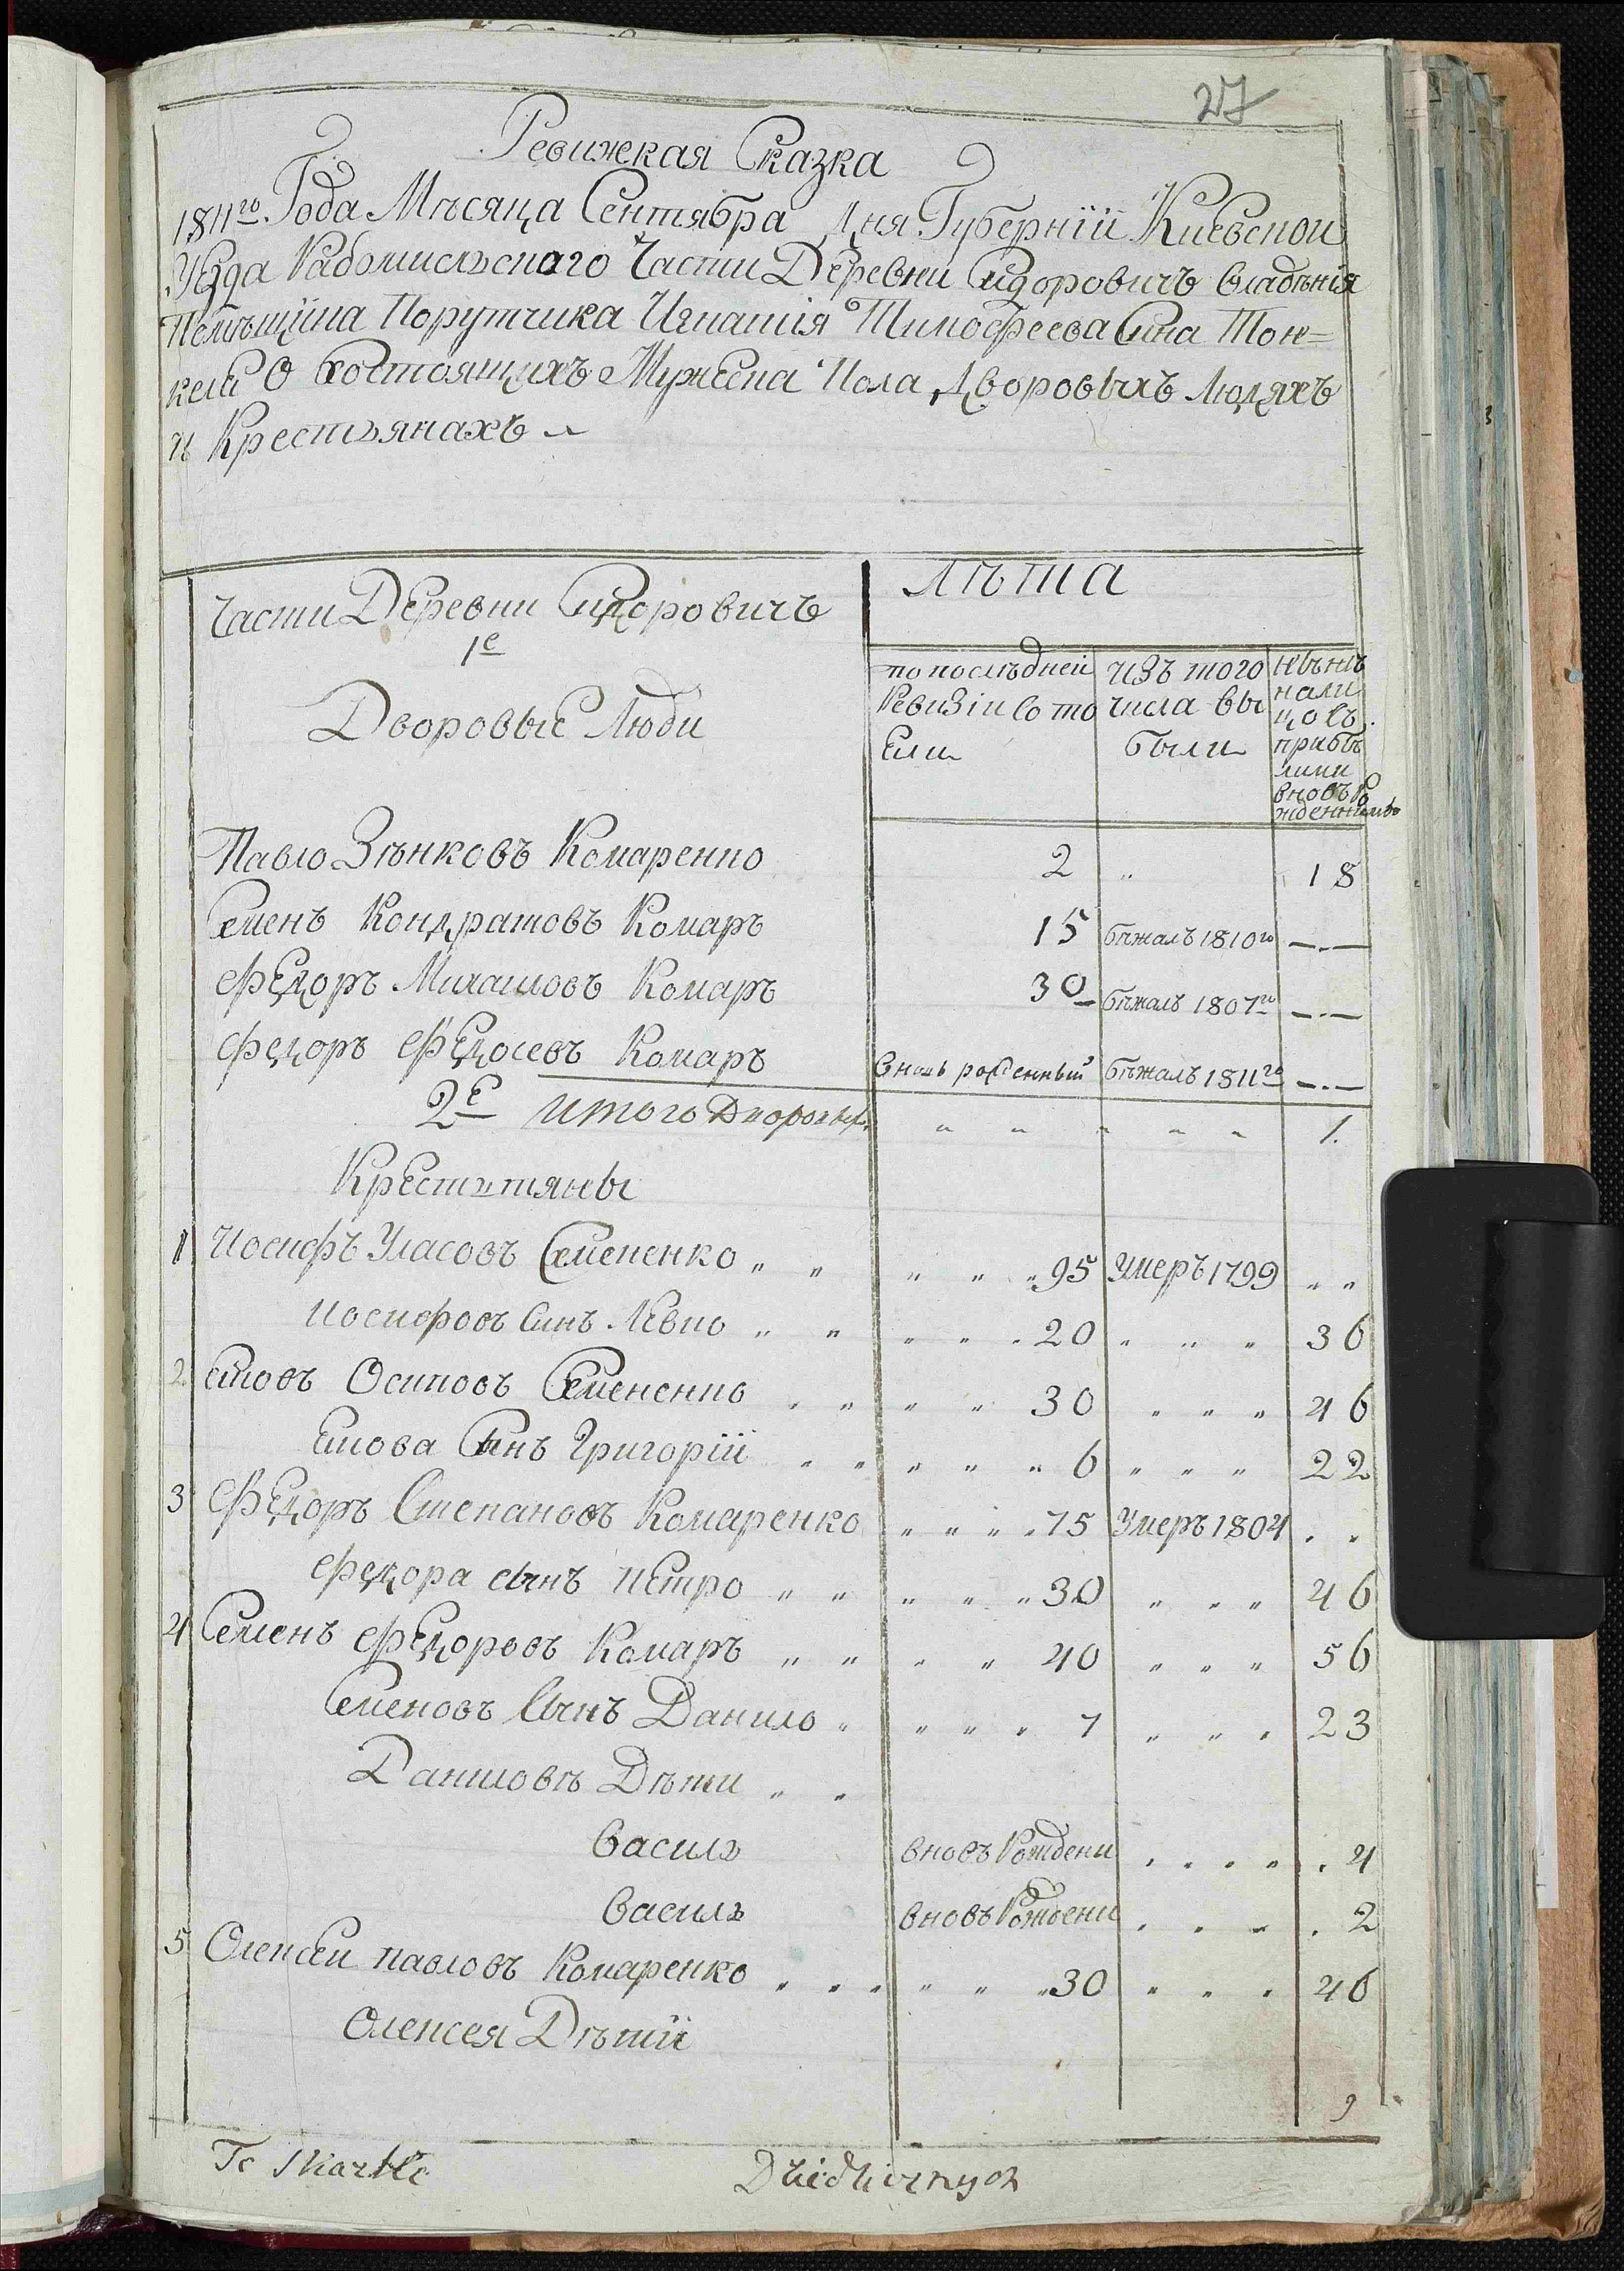 27
Ревижская Сказка
1811го Года Мѣсяца Сентября Дня Губернїи Киевской
Уезда Радомисльскаго Части Деревни Сидоровичъ владѣнїя
Помѣщика Порутчика Игнатїя Тимофеева Сина Тон=
кели О состоящихъ Мужеска Пола Дворовыхъ Людяхъ
и Крестьянахъ
Части Деревни Сидоровичъ
1е
Дворовые Люди
Лѣта
по послѣдней Ревизїи Состо Ели
изъ того числа вы были
нынѣ нали цов. прибы лими вновъ Рожденными
Павло Зѣнковъ Комаренко 2 „ 18
Семенъ Кондратовъ Комаръ 15 бѣжалъ 1810го —.—
Федоръ Михаиловъ Комаръ 30 бѣжалъ 1807го —.—
Федоръ Федосевъ Комаръ вновъ рожденный бѣжалъ 1811го —.—
2е Итого Дворовых „ „ „ „ „ 1.
Крестьтяны
1 Иосифъ Уласовъ Семененко „ „ „ „ „ 95 Умеръ 1799 „ „
Иосифовъ Синъ Левко „ „ „ „ „ 20 „ „ „ 36
2 Емовъ Осиповъ Семененко „ „ „ „ 30 „ „ „ 46
Емова Сынъ Григорїй „ „ „ „ „ 6 „ „ „ 22
3 Федоръ Степановъ Комаренко „ „ „ „ 75 Умеръ 1804 . .
Федора сынъ Петро „ „ „ „ „ 30 „ „ „ 46
4 Семенъ Федоровъ Комаръ „ „ „ „ 40 „ „ „ 56
Семеновъ Сынъ Данило „ „ „ „ 7 „ „ „ 23
Даниловъ Дѣти „ „
Василь вновъ Рождени . . . „ . 4
Василь вновъ Рождени . „ „ . 2
5 Олексей Павловъ Комаренко „ „ „ „ „ „ 30 „ „ „ 46
Олексея Дѣтїи
9